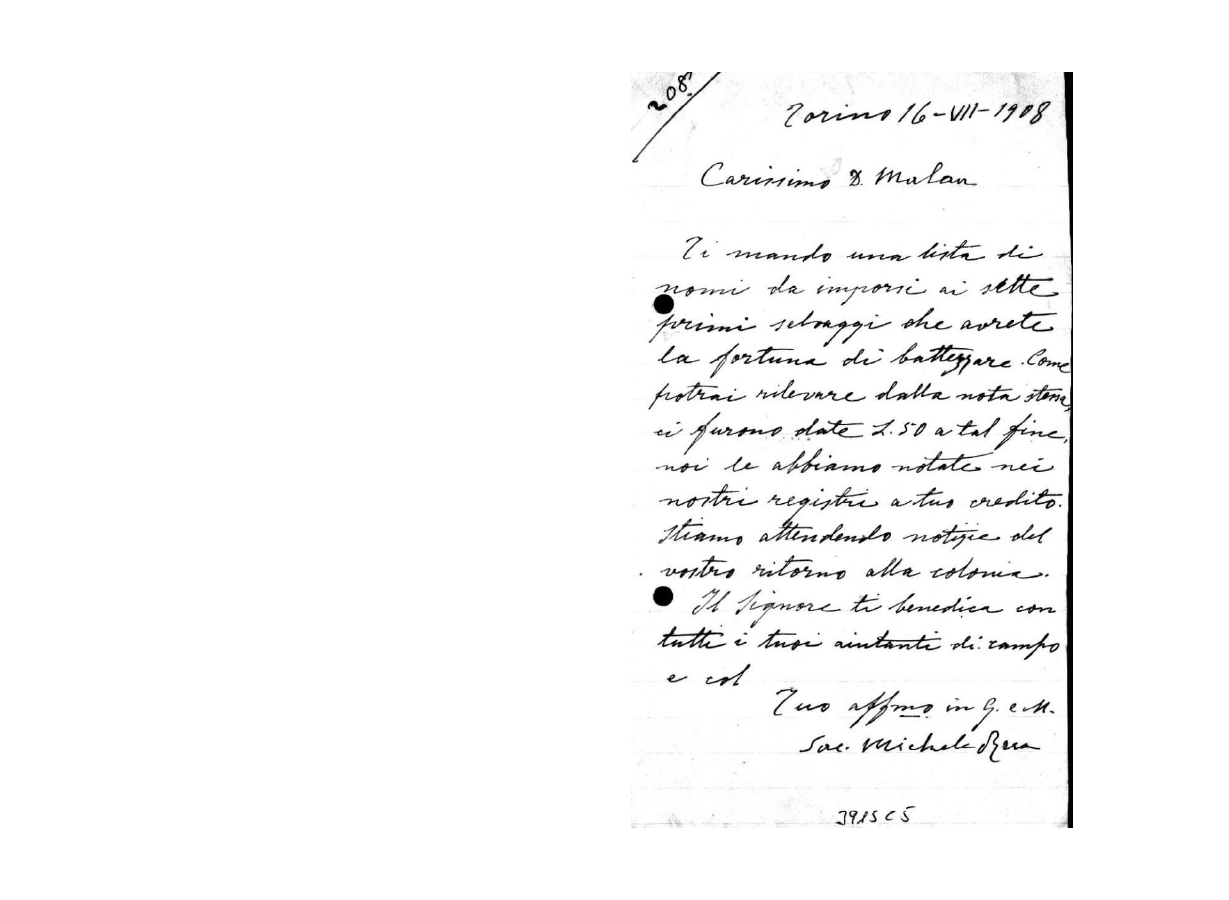 208.
Torino 16-VII-1908
Carissimo D. Malan
Ti mando una lista di
nomi da imporsi ai sette
primi selvaggi che avrete
la fortuna di battezzare. Come
potrai rilevare dalla nota stessa,
ci furono date L. 50 a tal fine,
noi le abbiamo notate nei
nostri registri a tuo credito.
Stiamo attendendo notizie del
vostro ritorno alla colonia.
Il Signore ti benedica con
tutti i tuoi aiutanti di campo
e col
Tuo affmo in G. e M.
Sac. Michele Rua
3915 C 5